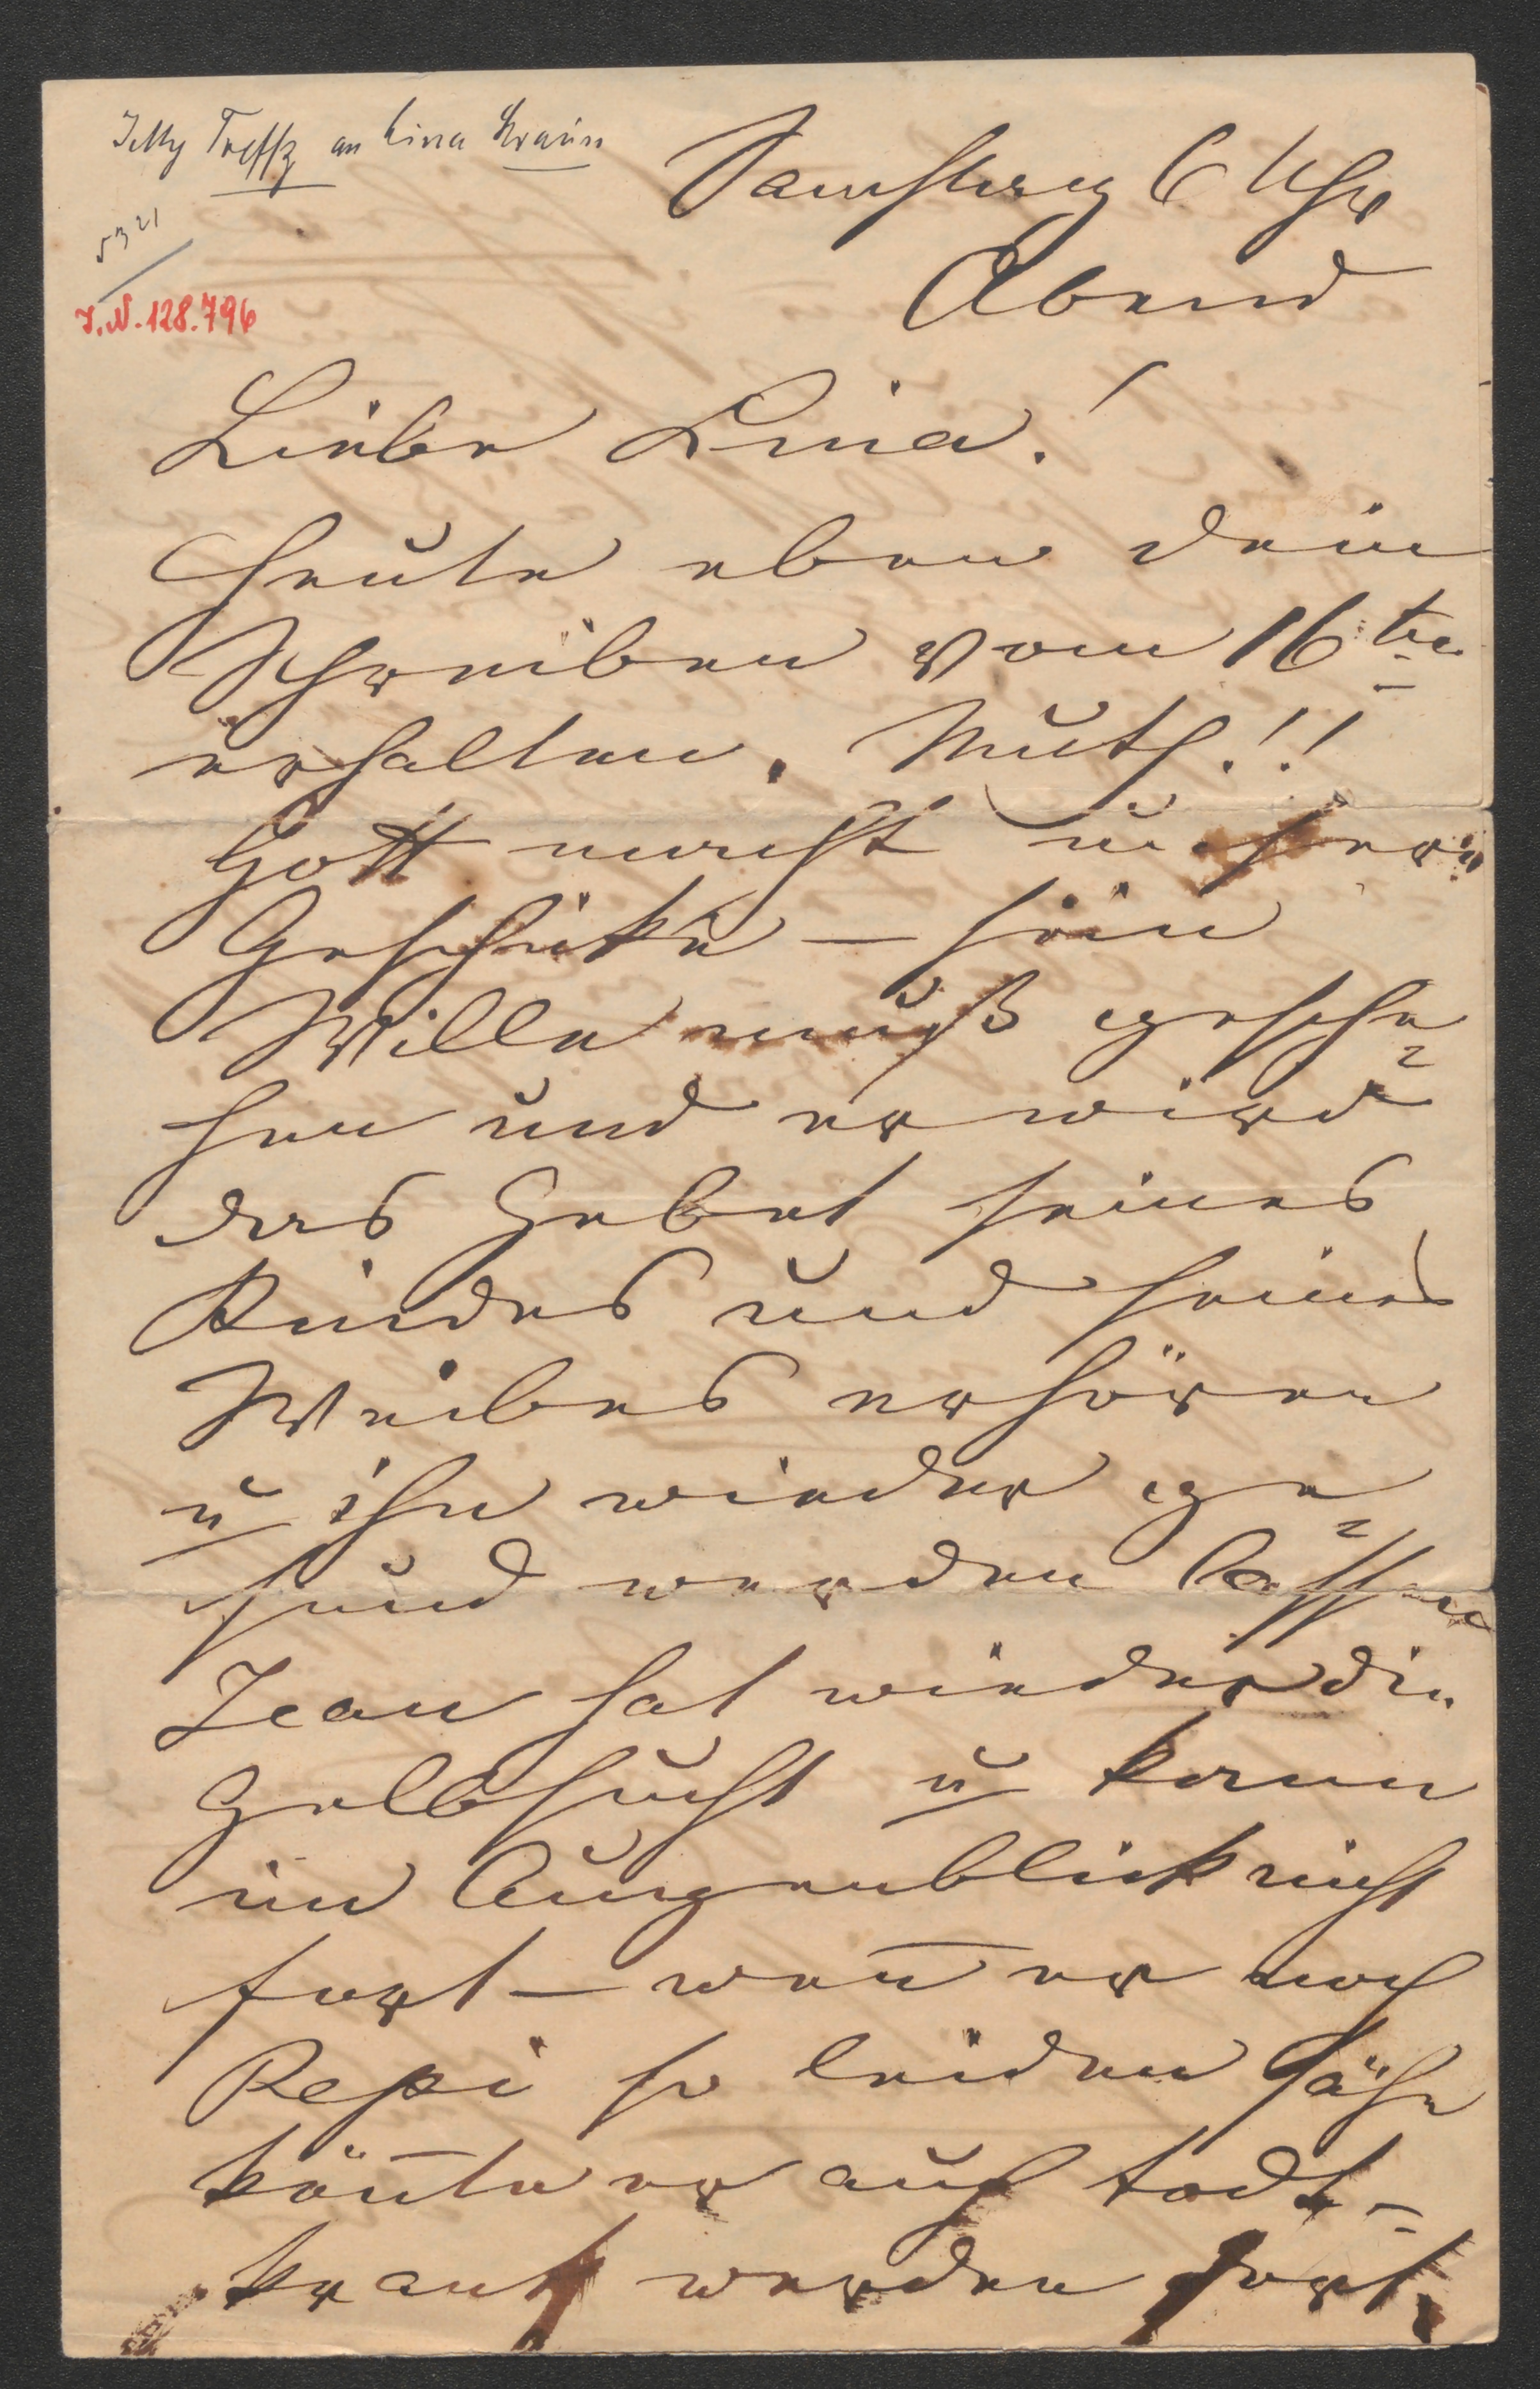 Jetty Treffz an Lina Strauss
5321
I.N. 128.796
Samstag 6 Uhr
Abend
Liebe Lina!
Heute eben dein
Schreiben vom 16ten
erhalten. Muth!!
Gott macht unsere
Geschike – sein
Wille muß gesche=
hen und er wird
das Gebet seines
Kindes und seines
Weibes erhören
u ihn wieder ge=
sund werden lassen
Jean hat wieder die
Gelbsucht u kann
im Augenblick nicht
fort – wen̄ er noch
Pepi so leiden sähe
kön̄te er auch todt=
krank werden dort.